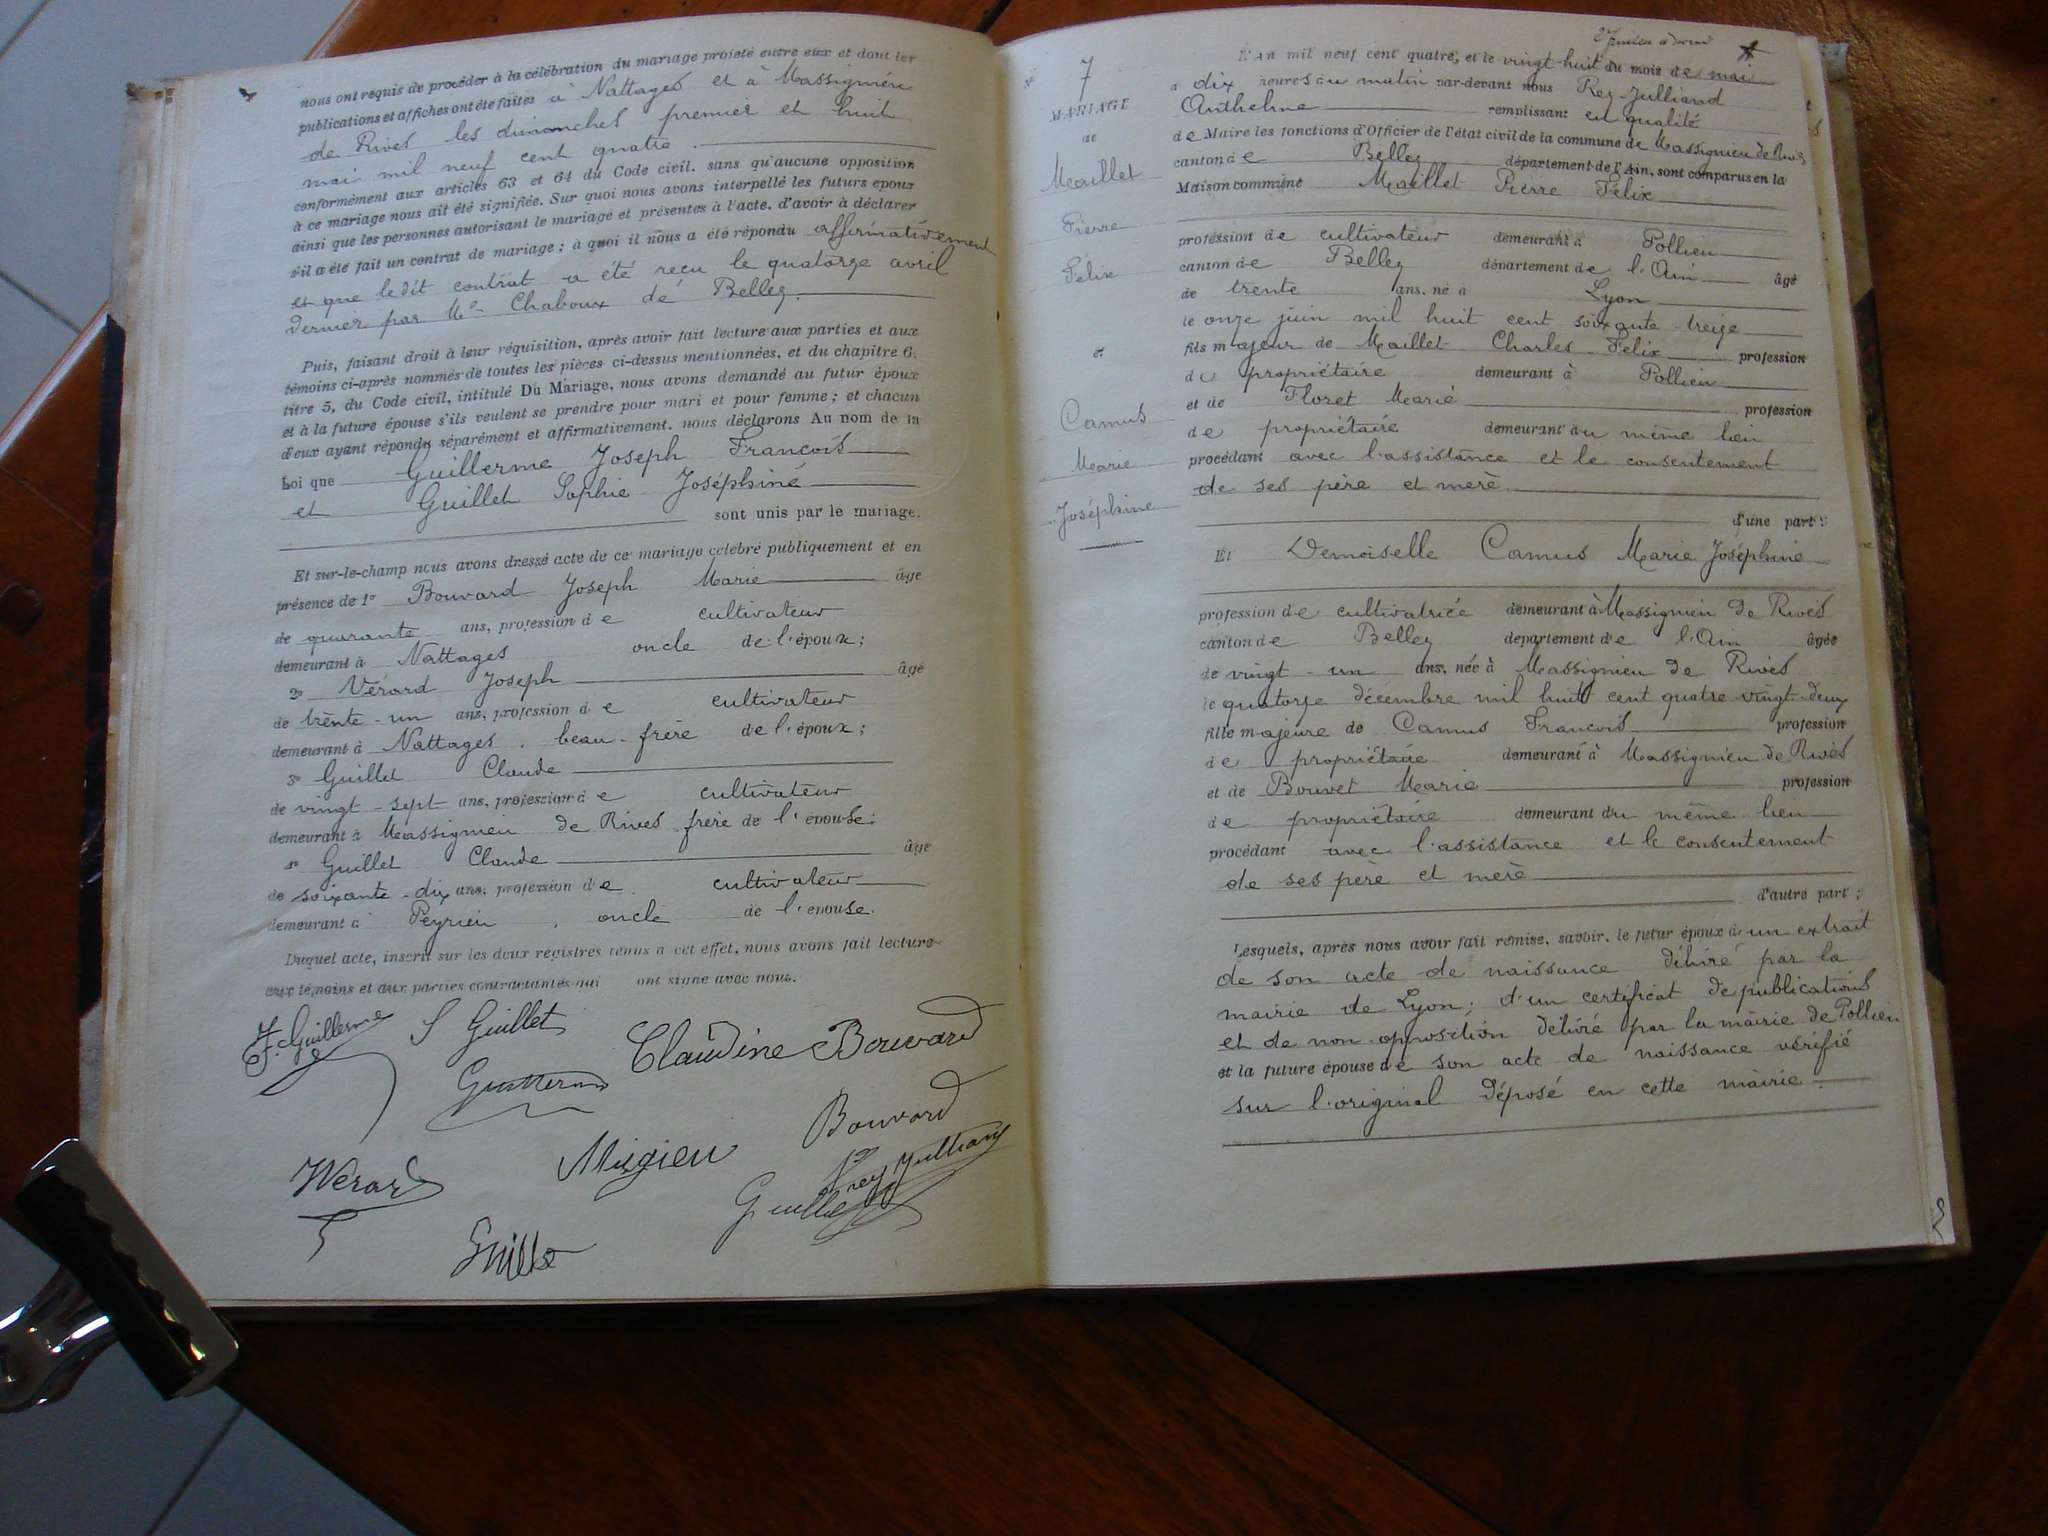 nous ont requis de procéder à la célébration du mariage projeté entre eux et dont les
publications et affiches ont été faites à Nattages et à Massignieu
de Rives les dimanches premier et huit
mai mil neuf cent quatre.
conformément aux articles 63 et 64 du Code civil. sans qu'aucune opposition
à ce mariage nous ait été signifiée. Sur quoi nous avons interpellé les futurs époux
ainsi que les personnes autorisant le mariage et présentes à l'acte. d'avoir à déclarer
s'il a été fait un contrat de mariage ; à quoi il nous a été répondu affirmativement
et que ledit contrat a été reçu le quatorze avril
dernier par Me Chaboux de Belley.
Puis, faisant droit à leur réquisition, après avoir fait lecture aux parties et aux
témoins ci-après nommés de toutes les pièces ci-dessus mentionnées, et du chapitre 6.
titre 5, du Code civil, intitulé Du Mariage, nous avons demandé au futur époux
et à la future épouse s'ils veulent se prendre pour mari et pour femme ; et chacun
d'eux ayant répondu séparément et affirmativement. nous déclarons Au nom de la
Loi que Guillerme Joseph François
et Guillet Sophie Joséphine
sont unis par le mariage.
Et sur-le-champ nous avons dressé acte de ce mariage célébré publiquement et en
présence de 1° Bouvard Joseph Marie âgé
de quarante ans, profession de cultivateur
demeurant à Nattages oncle de l'époux ;
2° Vérard Joseph âgé
de trente-un ans, profession de cultivateur
demeurant à Nattages. beau-frère de l'époux ;
3° Guillet Claude
de vingt-sept ans, profession de cultivateur
demeurant à Massignieu de Rives frère de l'épouse.
4° Guillet Claude âgé
de soixante-dix ans, profession de cultivateur
demeurant à Peyrieu. oncle de l'épouse.
Duquel acte, inscrit sur les deux registres tenus à cet effet, nous avons fait lecture
aux témoins et aux parties contractantes qui ont signé avec nous.
F. Guillerme S Guillet Claudine Bouvard
Bouvard
Werard Migieu
Rey Julliand
7
MARIAGE
de
Maillet
Pierre
Félix
et
Camus
Marie
Joséphine
L'an mil neuf cent quatre, et le vingt-huit du mois de mai
à dix heures au matin par-devant nous Rey-Julliand
Anthelme remplissant en qualité
de Maire les fonctions d'Officier de l'état civil de la commune de Massignieu de Rives
canton de Belley département de l'Ain, sont comparus en la
Maison commune Maillet Pierre Félix
profession de cultivateur demeurant à Pollieu
canton de Belley département de l'Ain âgé
de trente ans. né à Lyon
le onze juin mil huit cent soixante-treize
fils majeur de Maillet Charles Félix profession
de propriétaire demeurant à Pollieu
et de Floret Marie profession
de propriétaire demeurant au même lieu
procédant avec l'assistance et le consentement
de ses père et mère
d'une part :
Et Demoiselle Camus Marie Joséphine
profession de cultivatrice demeurant à Massignieu de Rives
canton de Belley département de l'Ain âgée
de vingt-un ans. née à Massignieu de Rives
le quatorze décembre mil huit cent quatre vingt-deux
fille majeure de Camus François profession
de propriétaire demeurant à Massignieu de Rives
et de Bouvet Marie profession
de propriétaire demeurant du même lieu
procédant avec l'assistance et le consentement
de ses père et mère
d'autre part ;
Lesquels, après nous avoir fait remise, savoir, le futur époux d'un extrait
de son acte de naissance délivré par la
mairie de Lyon ; d'un certificat de publications
et de non-opposition délivré par la mairie de Pollieu
et la future épouse de son acte de naissance vérifié
sur l'original déposé en cette mairie.